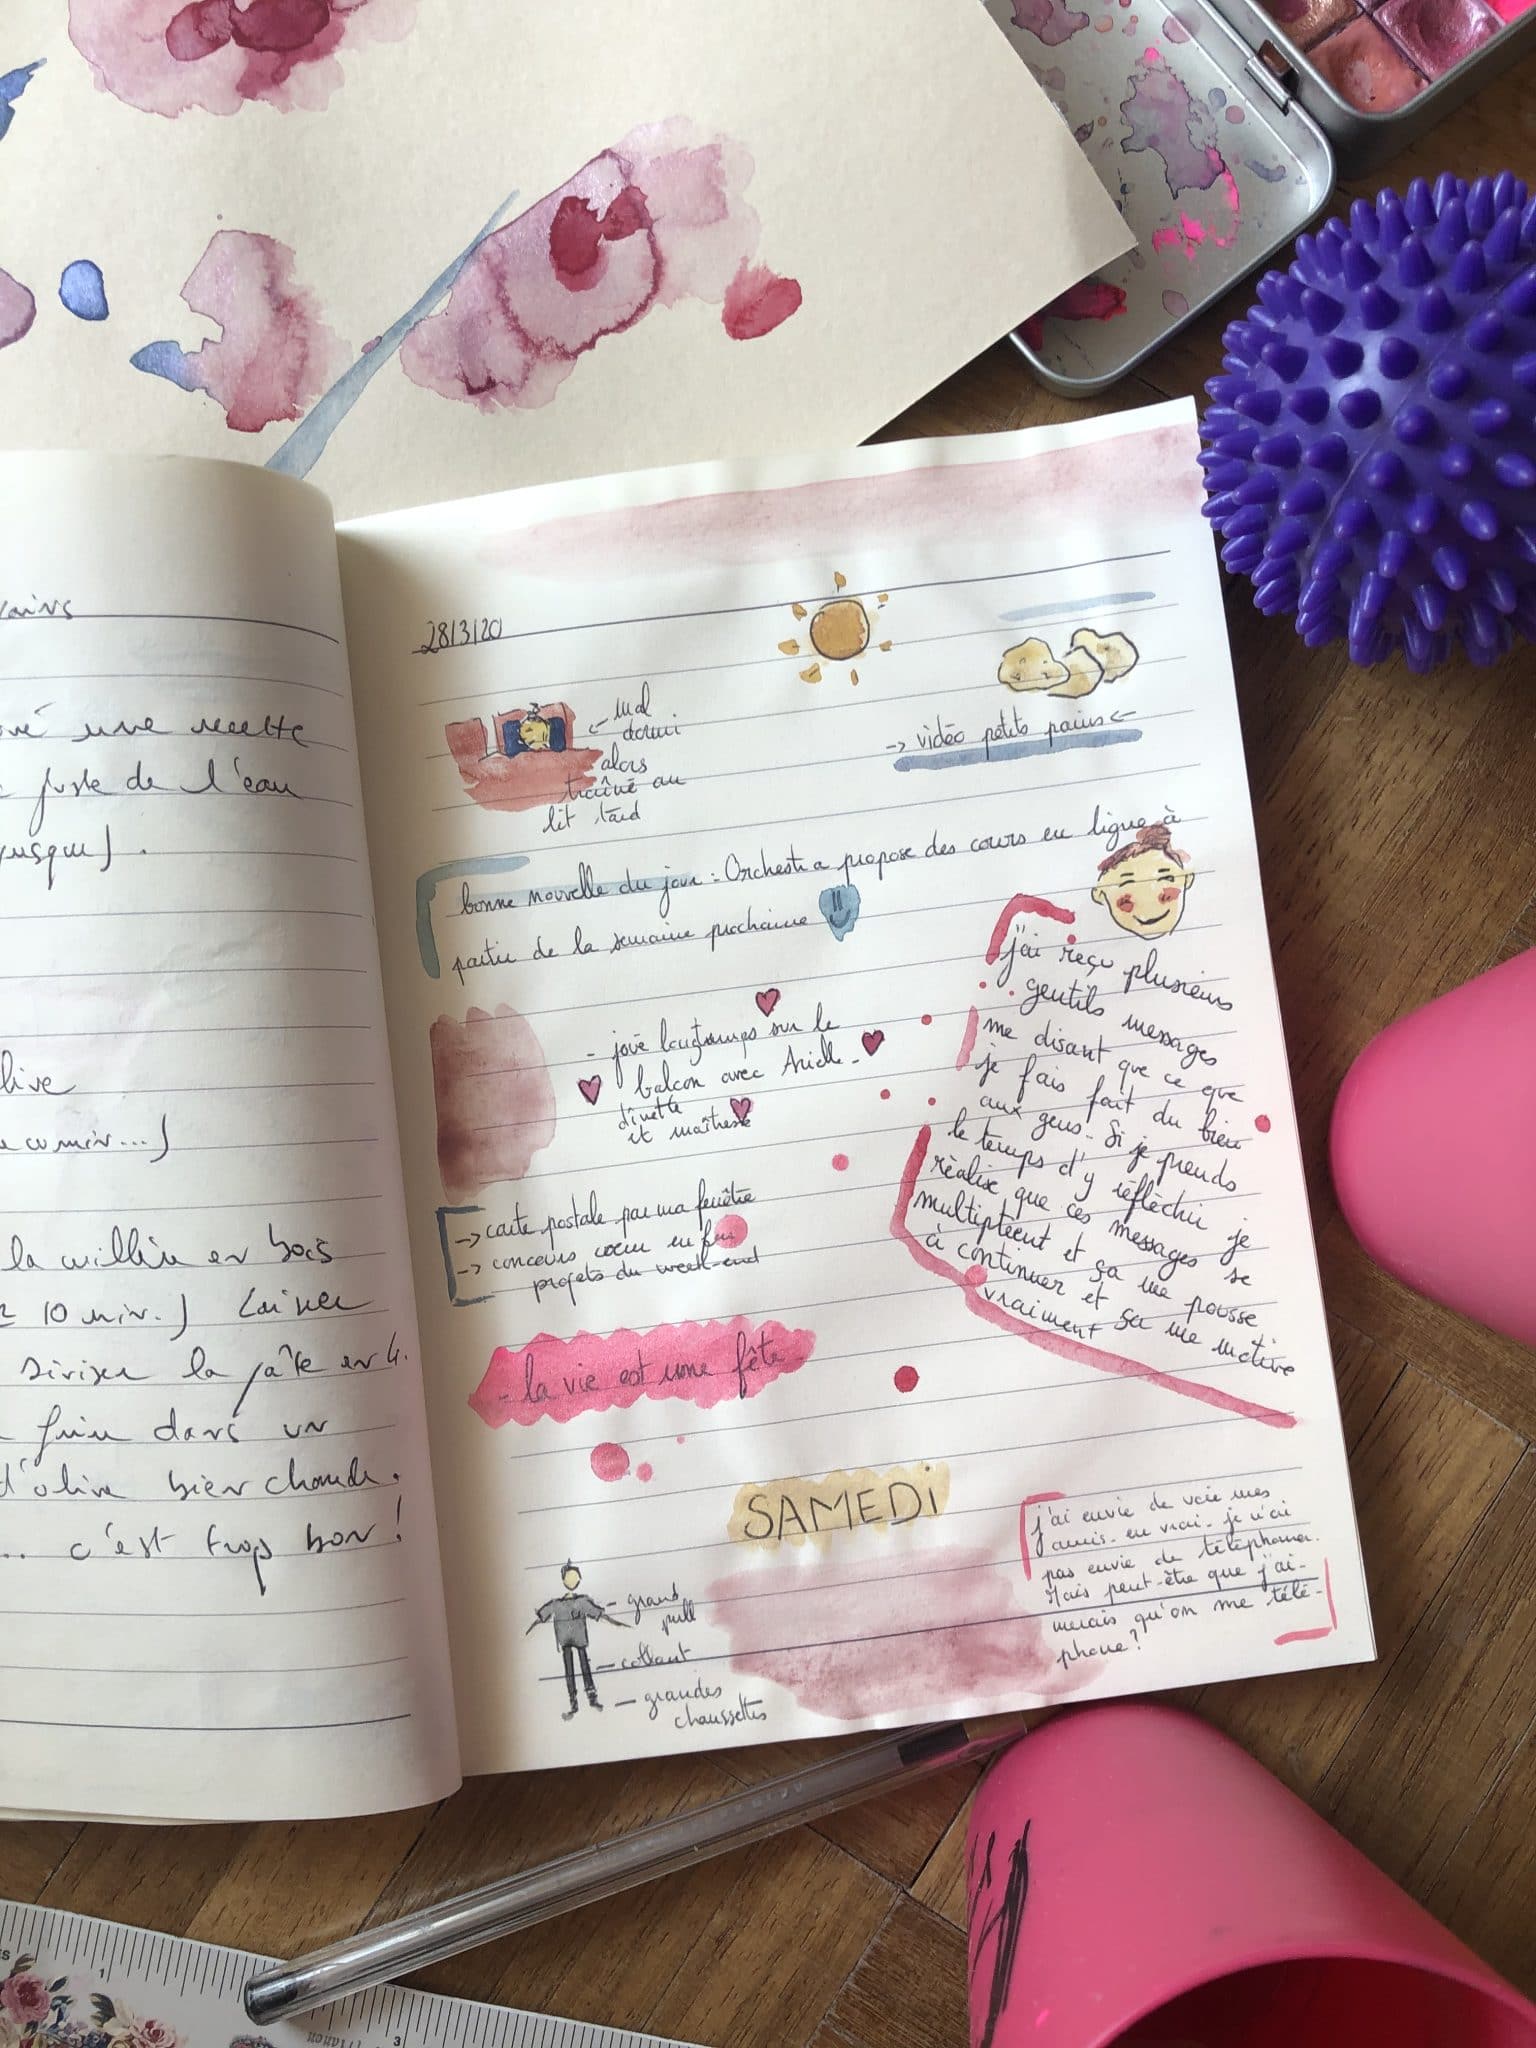 une recette
juste de l'eau
jusque).
live
cumin...)
la cuillère en bois
10 min.) Laisser
Diviser la pâte en 4.
frire dans un
d'olive bien chaude.
... c'est trop bon!
28/3/20
mal
dormi
alors
traîné au
lit tard
-> vidéo petits pains <-
bonne nouvelle du jour : Orchestra propose des cours en ligne à
partir de la semaine prochaine
- joué longtemps sur le
balcon avec Arielle -
dînette
et maîtresse
-> carte postale par ma fenêtre
-> concours cœur en feu
projets du week-end
- la vie est une fête -
j'ai reçu plusieurs
gentils messages
me disant que ce que
je fais fait du bien
aux gens. Si je prends
le temps d'y réfléchir je
réalise que ces messages se
multiplient et ça me pousse
à continuer et ça me motive
vraiment
SAMEDi
- grand
pull
- collant
- grandes
chaussettes
j'ai envie de voir mes
amis en vrai. je n'ai
pas envie de téléphoner.
Mais peut-être que j'ai-
merais qu'on me télé-
phone?
1
3